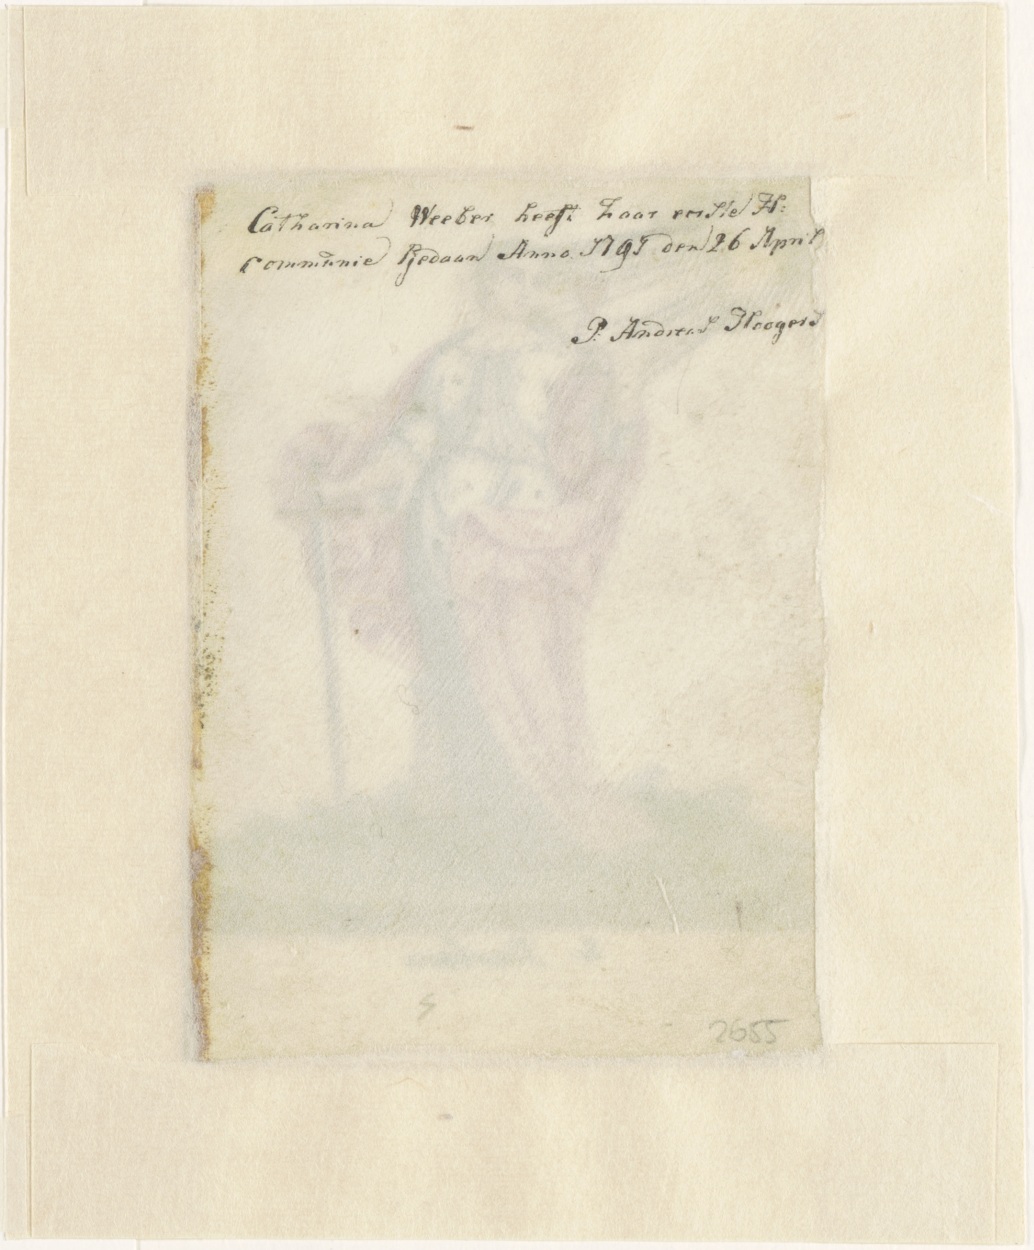 Catharina Weeber heeft haar eerste H:
Communie Gedaan Anno 1795 den 26 April
P. Andreas Hoogers
2655